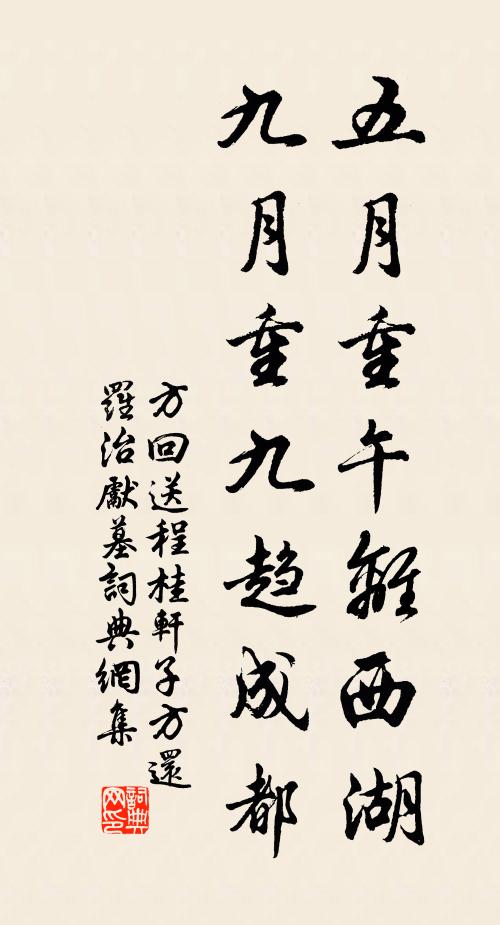 五月重午離西湖
九月重九趋成都
方回送程桂軒子方還
羅治獻墓詞典網集
詞典網印